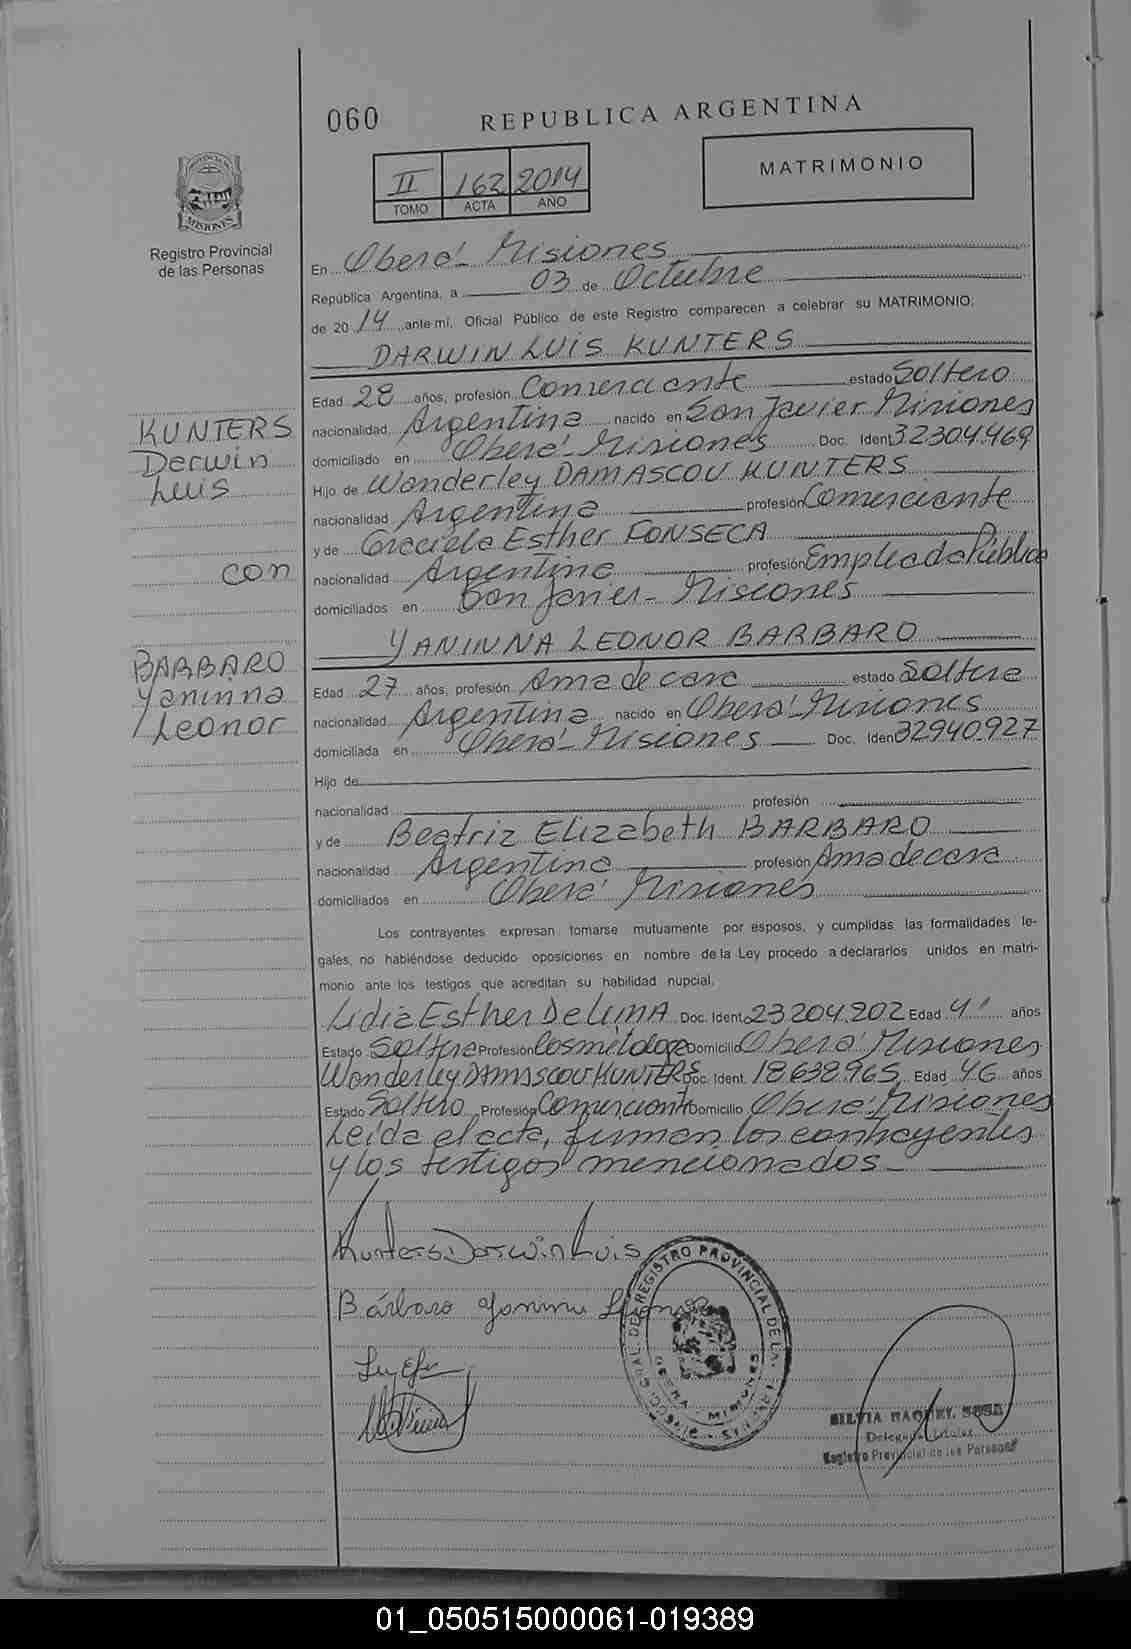 060 REPUBLICA ARGENTINA
MATRIMONIO
II 162 2014
TOMO ACTA AÑO
MISIONES
Registro Provincial
de las Personas
En Oberá - Misiones
República Argentina, a 03 de Octubre
de 2014 ante mí, Oficial Público de este Registro comparecen a celebrar su MATRIMONIO:
DARWIN LUIS KUNTERS
Edad 28 años, profesión Comerciante estado Soltero
nacionalidad Argentina nacido en San Javier Misiones
domiciliado en Oberá - Misiones Doc. Ident 32304.469
Hijo de Wanderley DAMASCOU KUNTERS
nacionalidad Argentina profesión Comerciante
y de Graciela Esther FONSECA
nacionalidad Argentina profesión Empleada Pública
domiciliados en San Javier - Misiones
KUNTERS
Darwin
Luis
con
BARBARO
Yaninna
Leonor
YANINNA LEONOR BARBARO
Edad 27 años, profesión Ama de casa estado Soltera
nacionalidad Argentina nacido en Oberá - Misiones
domiciliada en Oberá - Misiones Doc. Iden 32940.927
Hijo de
nacionalidad profesión
y de Beatriz Elizabeth BARBARO
nacionalidad Argentina profesión Ama de casa
domiciliados en Oberá Misiones
Los contrayentes expresan tomarse mutuamente por esposos, y cumplidas las formalidades le-
gales, no habiéndose deducido oposiciones en nombre de la Ley procedo a declararlos unidos en matri-
monio ante los testigos que acreditan su habilidad nupcial.
Lidia Esther De LIMA Doc. Ident. 23204.202 Edad 41 años
Estado Soltera Profesión Cosmetóloga Domicilio Oberá Misiones
Wanderley DAMASCOU KUNTERS Doc. Ident. 18638.965 Edad 46 años
Estado Soltero Profesión Comerciante Domicilio Oberá - Misiones
Leída el acta, firman los contrayentes
y los testigos mencionados
Kunters Darwin Luis
Bárbaro Yaninna Leonor
REGISTRO PROVINCIAL DE LAS
OBERA MISIONES
SILVIA RAQUEL SOSA
Delegada Titular
Registro Provincial de las Personas
01_050515000061-019389